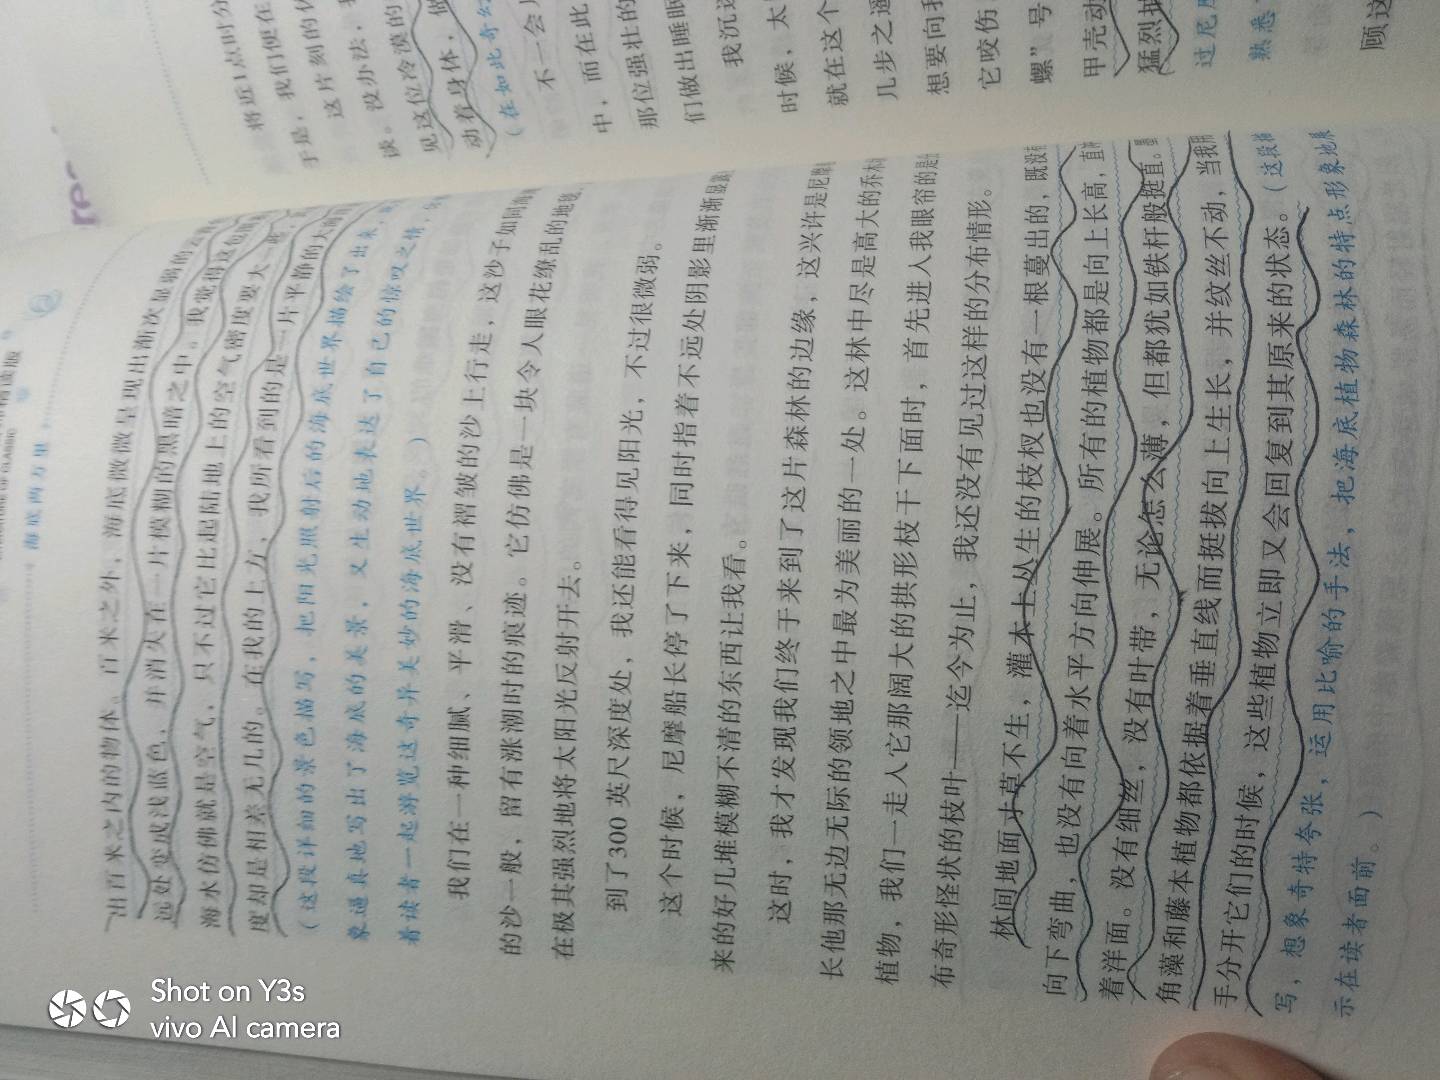 海底两万里
出百米之内的物体。百米之外，海底微微呈现出渐次显弱的云
远处变成浅蓝色，并消失在一片模糊的黑暗之中。我觉得这包围
海水仿佛就是空气，只不过它比起陆地上的空气密度要大一些，
度却是相差无几的。在我的上方，我所看到的是一片平静的大海
（这段详细的景色描写，把阳光照射后的海底世界描绘了出来，
象逼真地写出了海底的美景，又生动地表达了自己的惊叹之情，
着读者一起游览这奇异美妙的海底世界。）
我们在一种细腻、平滑、没有褶皱的沙上行走，这沙子如同海
的沙一般，留有涨潮时的痕迹。它仿佛是一块令人眼花缭乱的地毯，
在极其强烈地将太阳光反射开去。
到了300 英尺深度处，我还能看得见阳光，不过很微弱。
这个时候，尼摩船长停了下来，同时指着不远处阴影里渐渐显露
来的好几堆模糊不清的东西让我看。
这时，我才发现我们终于来到了这片森林的边缘，这兴许是尼摩
长他那无边无际的领地之中最为美丽的一处。这林中尽是高大的乔木
植物，我们一走入它那阔大的拱形枝干下面时，首先进入我眼帘的是
布奇形怪状的枝叶——迄今为止，我还没有见过这样的分布情形。
林间地面寸草不生，灌木上丛生的枝杈也没有一根蔓出的，既没有
向下弯曲，也没有向着水平方向伸展。所有的植物都是向上长高，直
着洋面。没有细丝，没有叶带，无论怎么薄，但都犹如铁杆般挺直。
角藻和藤本植物都依据着垂直线而挺拔向上生长，并纹丝不动，当我用
手分开它们的时候，这些植物立即又会回复到其原来的状态。（这段描
写，想象奇特夸张，运用比喻的手法，把海底植物森林的特点形象地展
示在读者面前。）
将近1点时分
于是，我们便在
这片刻的休
谈。没办法，我
见这位冷漠的
动着身体，做
（在如此奇幻
不一会儿
中，而在此
那位强壮的
们做出睡眠
我沉
时候，太
就在这个
几步之遥
想要向我
它咬伤
螺”号
甲壳动
猛烈地
过尼
熟悉
顾这
Shot on Y3s
vivo AI camera